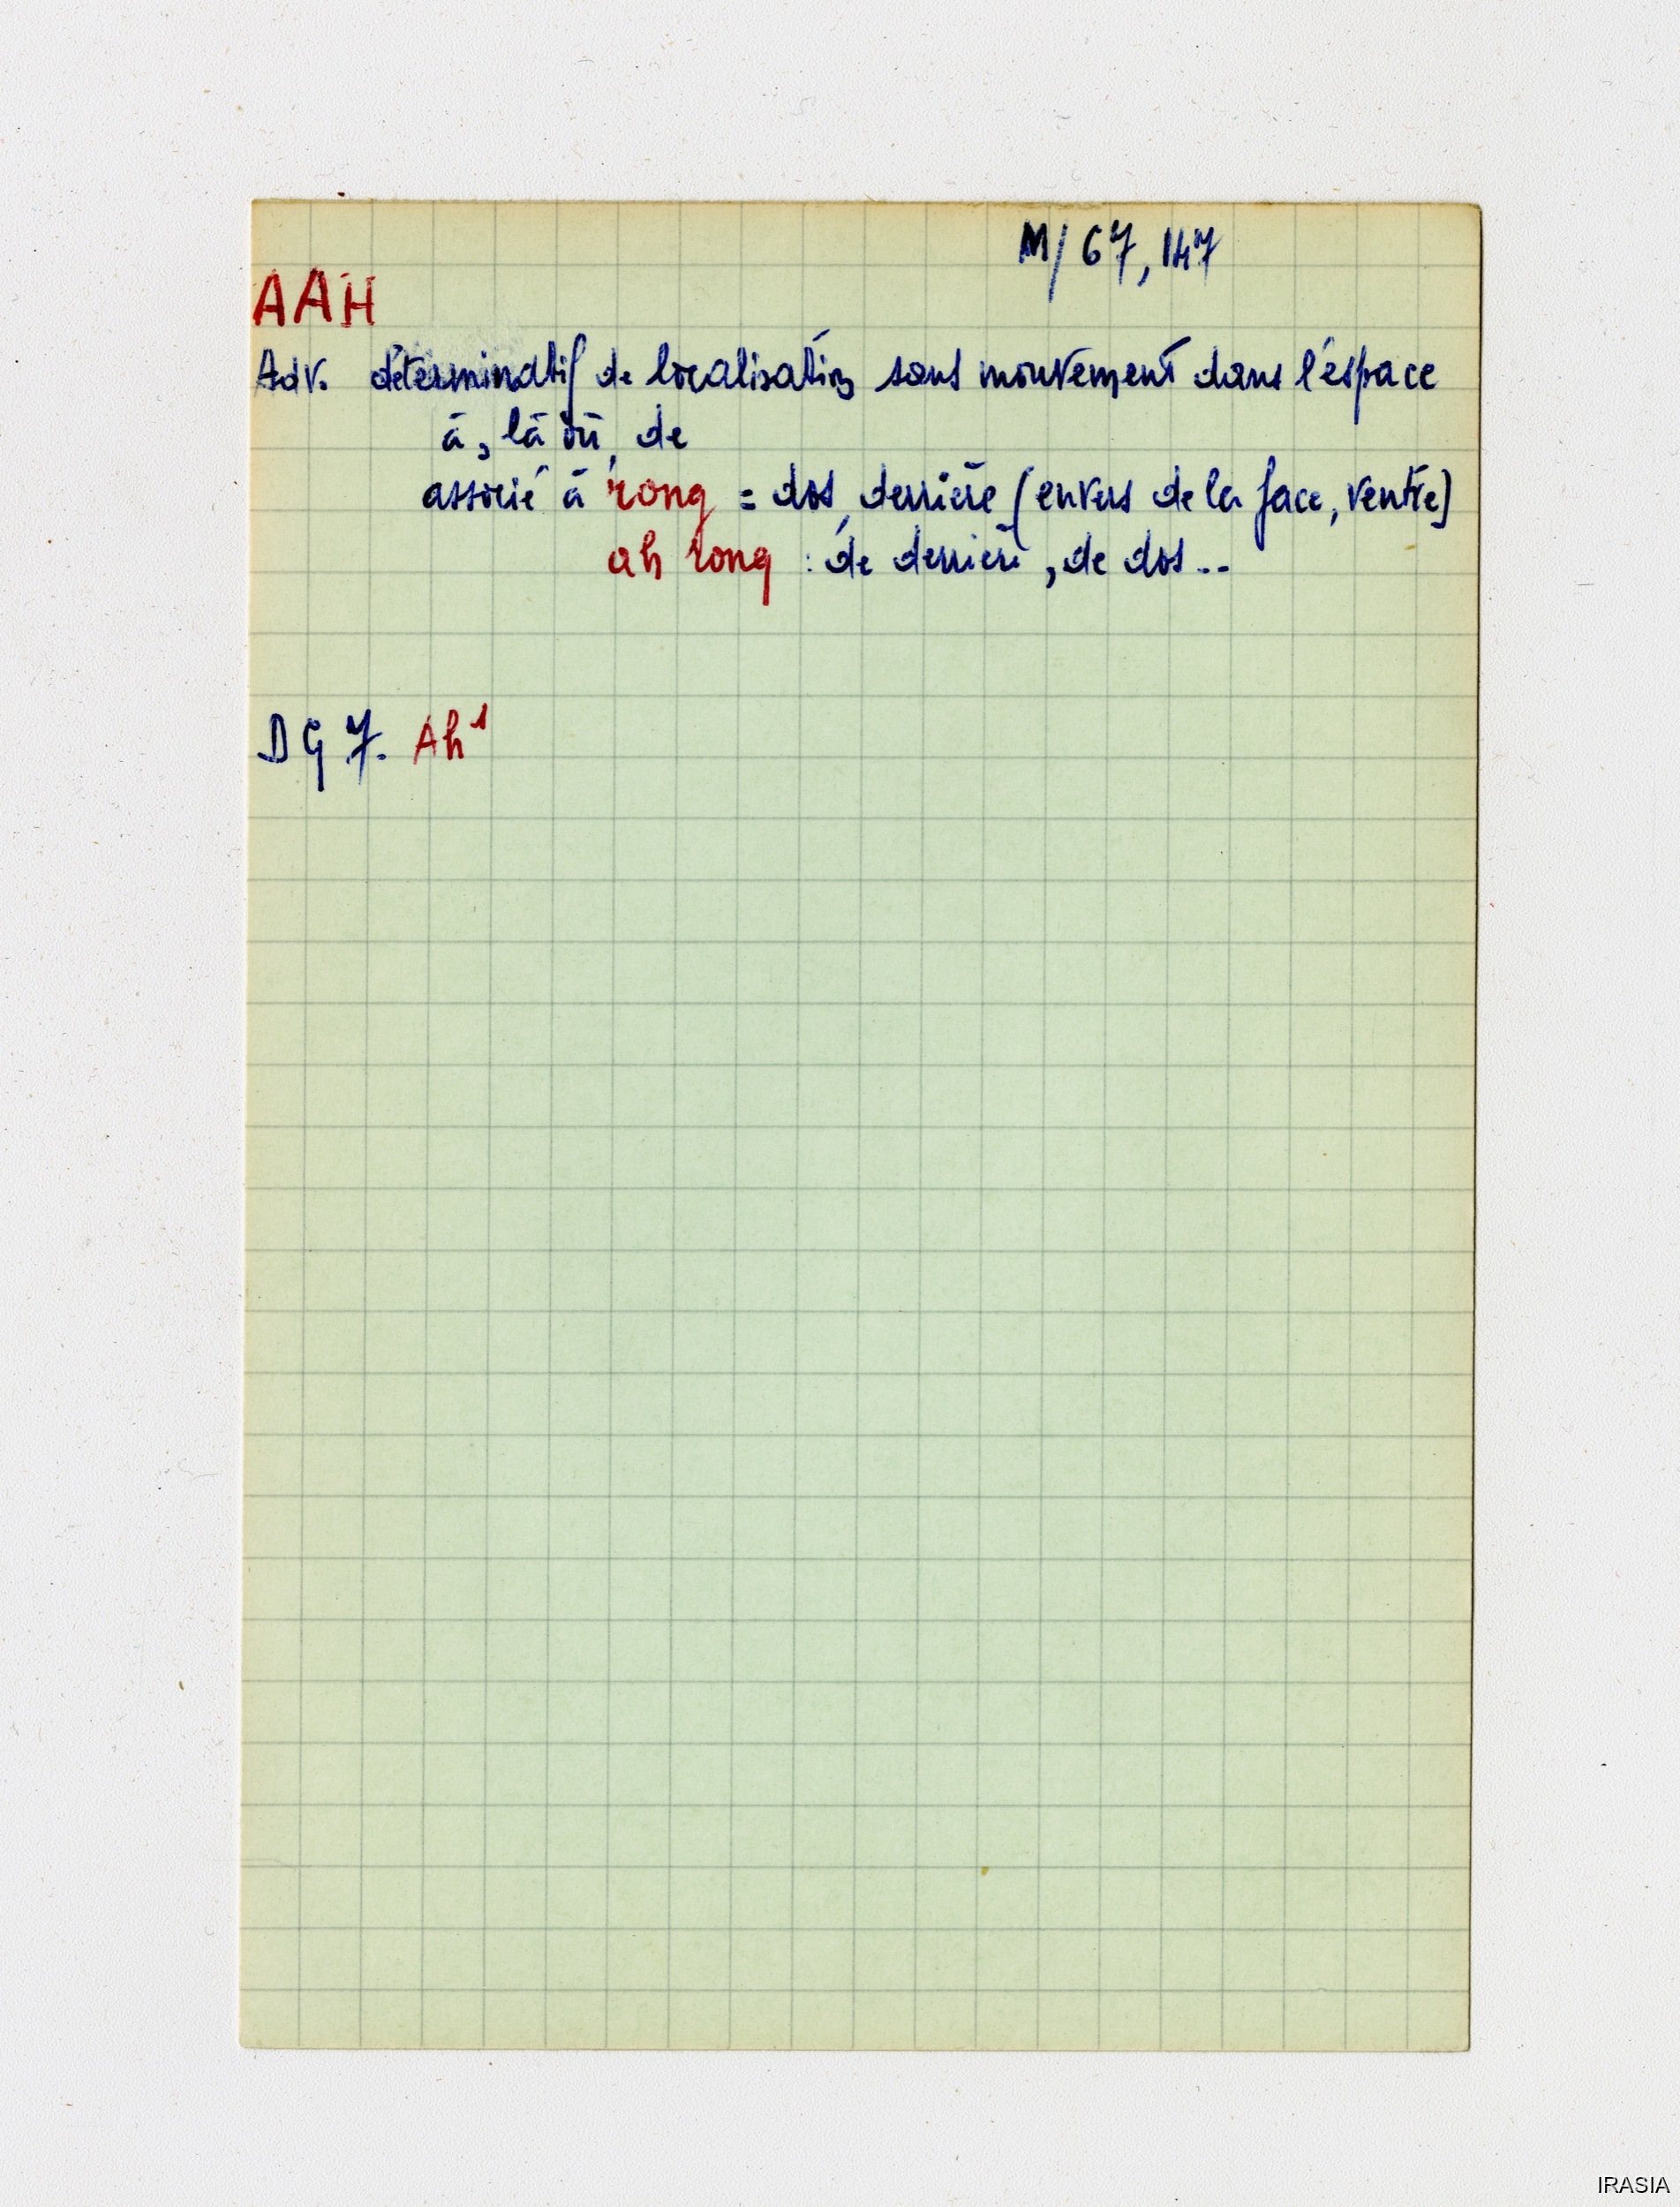 M/ 67, 147
AAH
Adv. déterminatif de localisation sans mouvement dans l'espace
à, là où, de
associé à rong = dos, derrière (envers de la face, ventre)
ah rong : de derrière, de dos...
DG 7. Ah¹
IRASIA